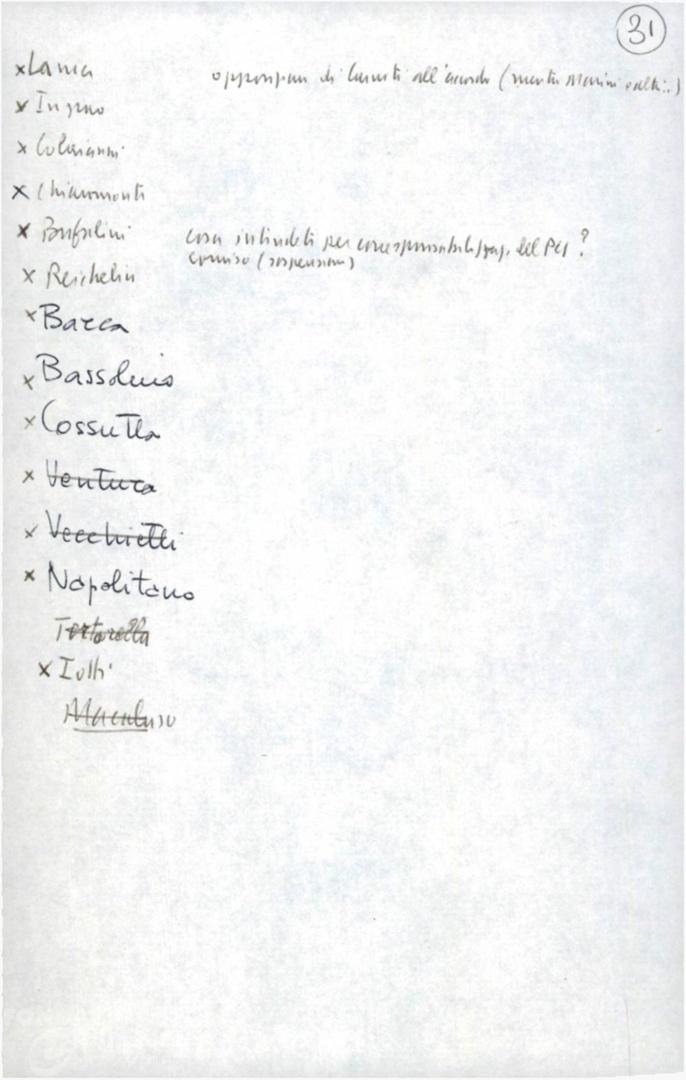 31
x Lama opposizione di Carniti all'accordo (mentre Marini e altri..)
x Ingrao
x Colajanni
x Chiaromonte
x Bufalini cosa intendete per corresponsabilizzaz. del PCI?
comiso (sospensione)
x Reichelin
x Barca
x Bassolino
x Cossutta
x Ventura
x Vecchietti
x Napolitano
Tortorella
x Iotti
Macaluso